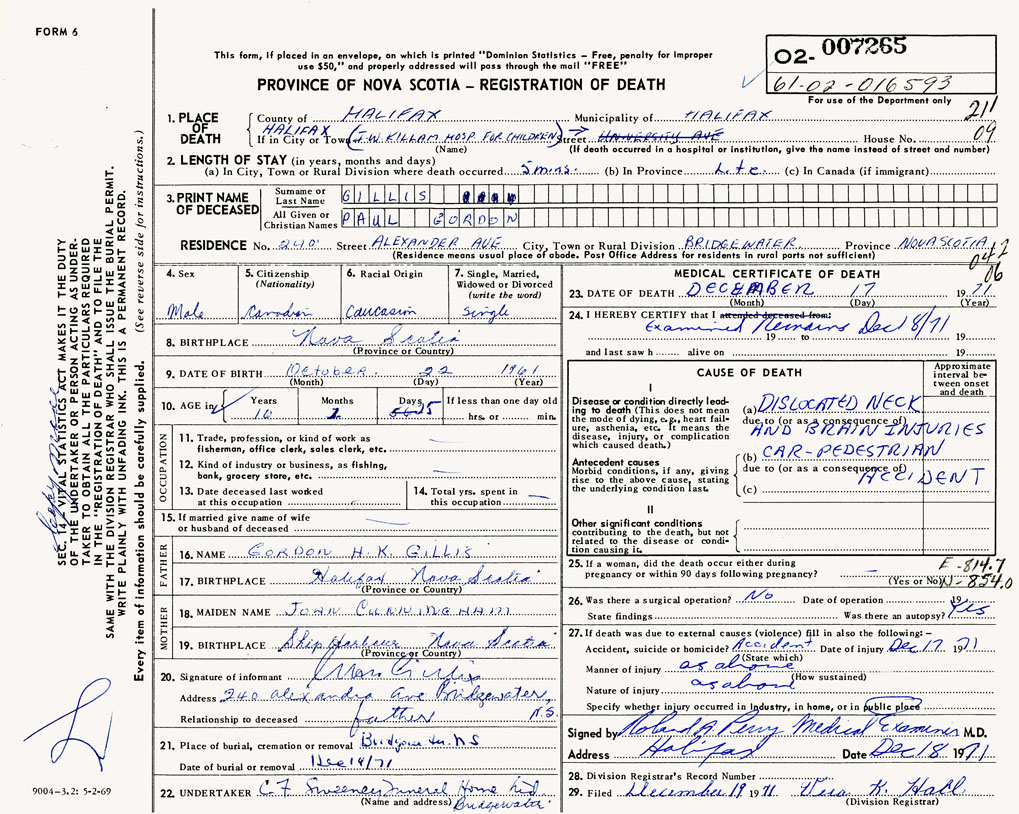 FORM 6
This form, if placed in an envelope, on which is printed "Dominion Statistics – Free, penalty for improper
use $50," and properly addressed will pass through the mail "FREE"
PROVINCE OF NOVA SCOTIA – REGISTRATION OF DEATH
02- 007265
61-02-016593
For use of the Department only
211
09
1. PLACE OF DEATH
County of HALIFAX Municipality of HALIFAX
If in City or Town HALIFAX (I.W. KILLAM HOSP. FOR CHILDREN) → Street UNIVERSITY AVE House No.
(Name) (If death occurred in a hospital or institution, give the name instead of street and number)
2. LENGTH OF STAY (in years, months and days)
(a) In City, Town or Rural Division where death occurred 5 mins. (b) In Province Life. (c) In Canada (if immigrant)
3. PRINT NAME OF DECEASED
Surname or Last Name GILLIS
All Given or Christian Names PAUL GORDON
RESIDENCE No. 240 Street ALEXANDER AVE City, Town or Rural Division BRIDGEWATER Province NOVA SCOTIA
(Residence means usual place of abode. Post Office Address for residents in rural parts not sufficient)
042
06
4. Sex
Male
5. Citizenship (Nationality)
Canadian
6. Racial Origin
Caucasian
7. Single, Married, Widowed or Divorced (write the word)
Single
8. BIRTHPLACE Nova Scotia
(Province or Country)
9. DATE OF BIRTH October 22 1961
(Month) (Day) (Year)
10. AGE in Years Months Days If less than one day old
10 1 25 hrs. or min.
OCCUPATION
11. Trade, profession, or kind of work as
fisherman, office clerk, sales clerk, etc.
12. Kind of industry or business, as fishing,
bank, grocery store, etc.
13. Date deceased last worked
at this occupation
14. Total yrs. spent in
this occupation
15. If married give name of wife
or husband of deceased
FATHER
16. NAME GORDON H.K. GILLIS
17. BIRTHPLACE Halifax Nova Scotia
(Province or Country)
MOTHER
18. MAIDEN NAME JOAN CUNNINGHAM
19. BIRTHPLACE Ship Harbour Nova Scotia
(Province or Country)
20. Signature of informant
Address 240 Alexandra Ave Bridgewater,
Relationship to deceased father N.S.
21. Place of burial, cremation or removal Bridgewater. NS
Date of burial or removal Dec 19/71
22. UNDERTAKER C F Sweeney Funeral Home Ltd
(Name and address) Bridgewater
MEDICAL CERTIFICATE OF DEATH
23. DATE OF DEATH DECEMBER 17 1971
(Month) (Day) (Year)
24. I HEREBY CERTIFY that I attended deceased from:
Examined Remains Dec 18/71
19 to 19
and last saw h alive on 19
CAUSE OF DEATH
Approximate interval between onset and death
I
Disease or condition directly leading to death (This does not mean the mode of dying, e.g., heart failure, asthenia, etc. It means the disease, injury, or complication which caused death.)
(a) DISLOCATED NECK
due to (or as a consequence of)
AND BRAIN INJURIES
Antecedent causes
Morbid conditions, if any, giving rise to the above cause, stating the underlying condition last.
(b) CAR-PEDESTRIAN
due to (or as a consequence of)
ACCIDENT
(c)
II
Other significant conditions
contributing to the death, but not related to the disease or condition causing it.
25. If a woman, did the death occur either during
pregnancy or within 90 days following pregnancy?
(Yes or No)
E-814.7
N-854.0
26. Was there a surgical operation? No Date of operation 19
State findings Was there an autopsy? Yes
27. If death was due to external causes (violence) fill in also the following: –
Accident, suicide or homicide? Accident Date of injury Dec 17 1971
(State which)
Manner of injury as above
(How sustained)
Nature of injury as above
Specify whether injury occurred in industry, in home, or in public place
Signed by Roland A. Perry Medical Examiner M.D.
Address Halifax Date Dec 18 1971
28. Division Registrar's Record Number
29. Filed December 19 1971 Vera K. Hall
(Division Registrar)
SEC. 14 – VITAL STATISTICS ACT MAKES IT THE DUTY
OF THE UNDERTAKER OR PERSON ACTING AS UNDER-
TAKER TO OBTAIN ALL THE PARTICULARS REQUIRED
IN THE "REGISTRATION OF DEATH" AND TO FILE THE
SAME WITH THE DIVISION REGISTRAR WHO SHALL ISSUE THE BURIAL PERMIT.
WRITE PLAINLY WITH UNFADING INK. THIS IS A PERMANENT RECORD.
Every item of information should be carefully supplied. (See reverse side for instructions.)
9004-3.2: 5-2-69